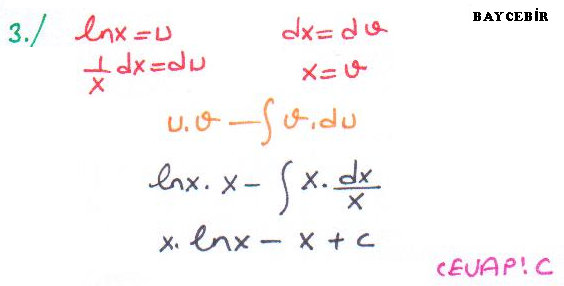 BAYCEBİR
3./ lnx=u dx=dv
1/x dx=du x=v
u.v — ∫ v.du
lnx. x — ∫ x. dx/x
x. lnx — x + c
CEVAP: C